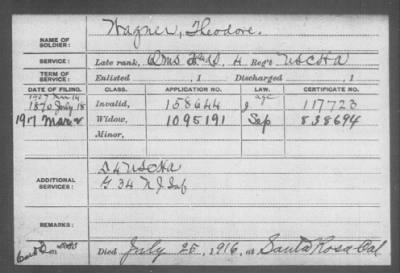 NAME OF SOLDIER: Wagner, Theodore.
SERVICE: Late rank, Qms H 4 Reg't USCHA
TERM OF SERVICE: Enlisted , 1 Discharged , 1
DATE OF FILING. CLASS. APPLICATION NO. LAW. CERTIFICATE NO.
1870 July 18 Invalid, 158644 age 117723
1917 Widow, 1095191 Sep 838694
Minor,
ADDITIONAL SERVICES:
D 4 USCHA
G 34 N J Inf
REMARKS:
Died July 25, 1916, at Santa Rosa Cal